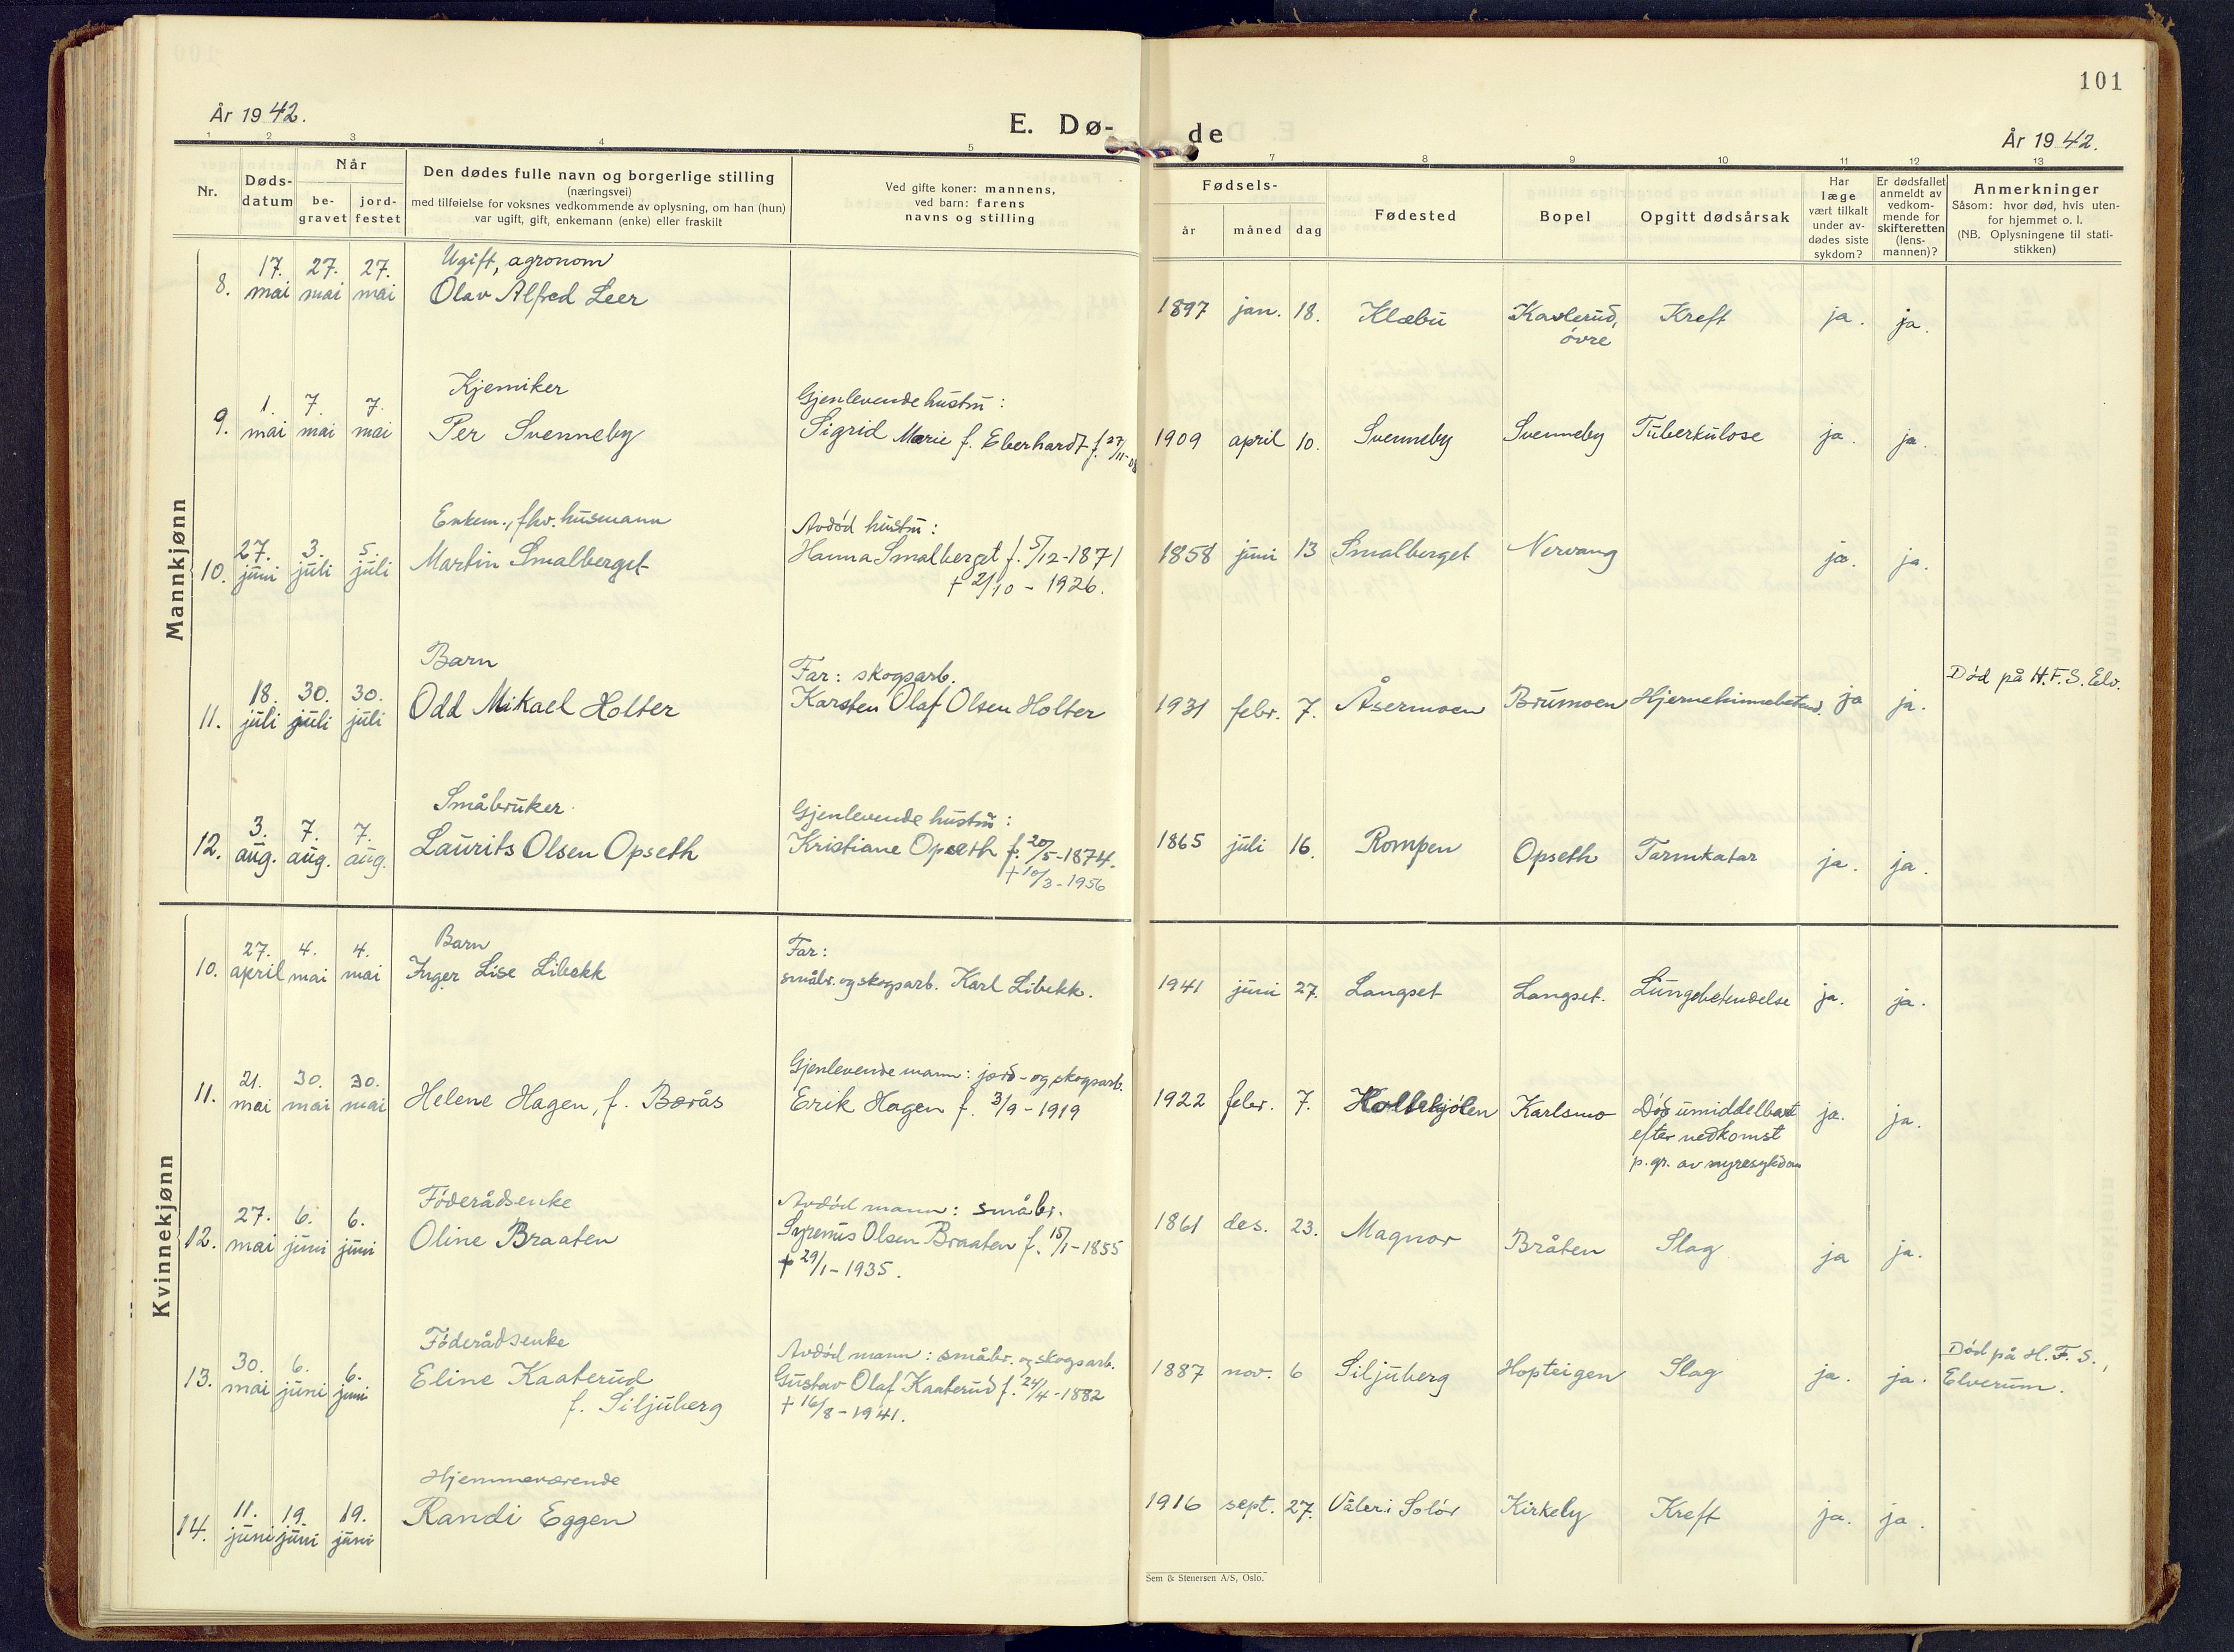 101
År 1942.
E. Dø-
de
År 1942.
1 2 3 4 5 7 8 9 10 11 12 13
Nr.
Døds-
datum
Når
be-
gravet
jord-
festet
Den dødes fulle navn og borgerlige stilling
(næringsvei)
med tilføielse for voksnes vedkommende av oplysning, om han (hun)
var ugift, gift, enkemann (enke) eller fraskilt
Ved gifte koner: mannens,
ved barn: farens
navns og stilling
Fødsels-
år måned dag
Fødested
Bopel
Opgitt dødsårsak
Har
læge
vært tilkalt
under av-
dødes siste
sykdom?
Er dødsfallet
anmeldt av
vedkom-
mende for
skifteretten
(lens-
mannen)?
Anmerkninger
Såsom: hvor død, hvis uten-
for hjemmet o. l.
(NB. Oplysningene til stati-
stikken)
Mannkjønn
Ugift, agronom
17. 27. 27.
8. mai mai mai Olav Alfred Leer
1897 jan. 18. Klæbu Kaslerud, Kreft ja. ja.
øvre
Kjemiker
1. 7. 7. Gjenlevende hustru:
9. mai mai mai Per Svenneby Sigrid Marie f. Eberhardt f. 27/11-08
1909 april 10. Svenneby Svenneby Tuberkulose ja. ja.
Enkem., fhv. husmann Avdød hustru:
27. 3. 5.
10. juni juli juli Martin Smalberget Hanna Smalberget f. 5/12-1871
+ 2/10 - 1926.
1858 juni 13 Smalberget Nervang ja. ja.
Barn Far: skogsarb.
18. 30. 30.
11. juli juli juli Odd Mikael Holter Karsten Olaf Olsen Holter
Død på H.F.S. Elv.
1931 febr. 7. Åsermoen Brumoen Hjernehinnebetend. ja ja.
Småbruker Gjenlevende hustru:
3. 7. 7.
12. aug. aug. aug. Laurits Olsen Opseth Kristiane Opseth f. 20/5-1874.
+ 10/3-1956
1865 juli 16. Rompen Opseth Tarmkatar ja. ja.
Kvinnekjønn
Barn Far:
27. 4. 4.
10. april mai mai Inger Lise Libekk småbr. og skogsarb. Karl Libekk.
1941 juni 27. Langset Langset. Lungebetendelse ja. ja.
Gjenlevende mann: jord- og skogsarb.
21. 30. 30.
11. mai mai mai Helene Hagen, f. Borås Erik Hagen f. 3/9-1919
1922 febr. 7. Karlsmo Død umiddelbart ja. ja.
efter nedkomst
p. gr. av nyresykdom
Føderådsenke Avdød mann: småbr.
27. 6. 6.
12. mai juni juni Oline Braaten Syrenus Olsen Braaten f. 15/1-1855
+ 29/1-1935.
1861 des. 23. Magnor Bråten Slag ja ja.
Føderådsenke Avdød mann: småbr. og skogsarb.
30. 6. 6.
13. mai juni juni Eline Kaaterud Gustav Olaf Kaaterud f. 24/4-1882
f. Siljuberg + 16/8-1941.
Død på H.F.S.,
1887 nov. 6 Siljuberg Hopteigen Slag ja. ja. Elverum.
Hjemmeværende
11. 19. 19.
14. juni juni juni Randi Eggen
1916 sept. 27. Våler i Solør Kirkeby Kreft ja. ja.
Sem & Stenersen A/S, Oslo.